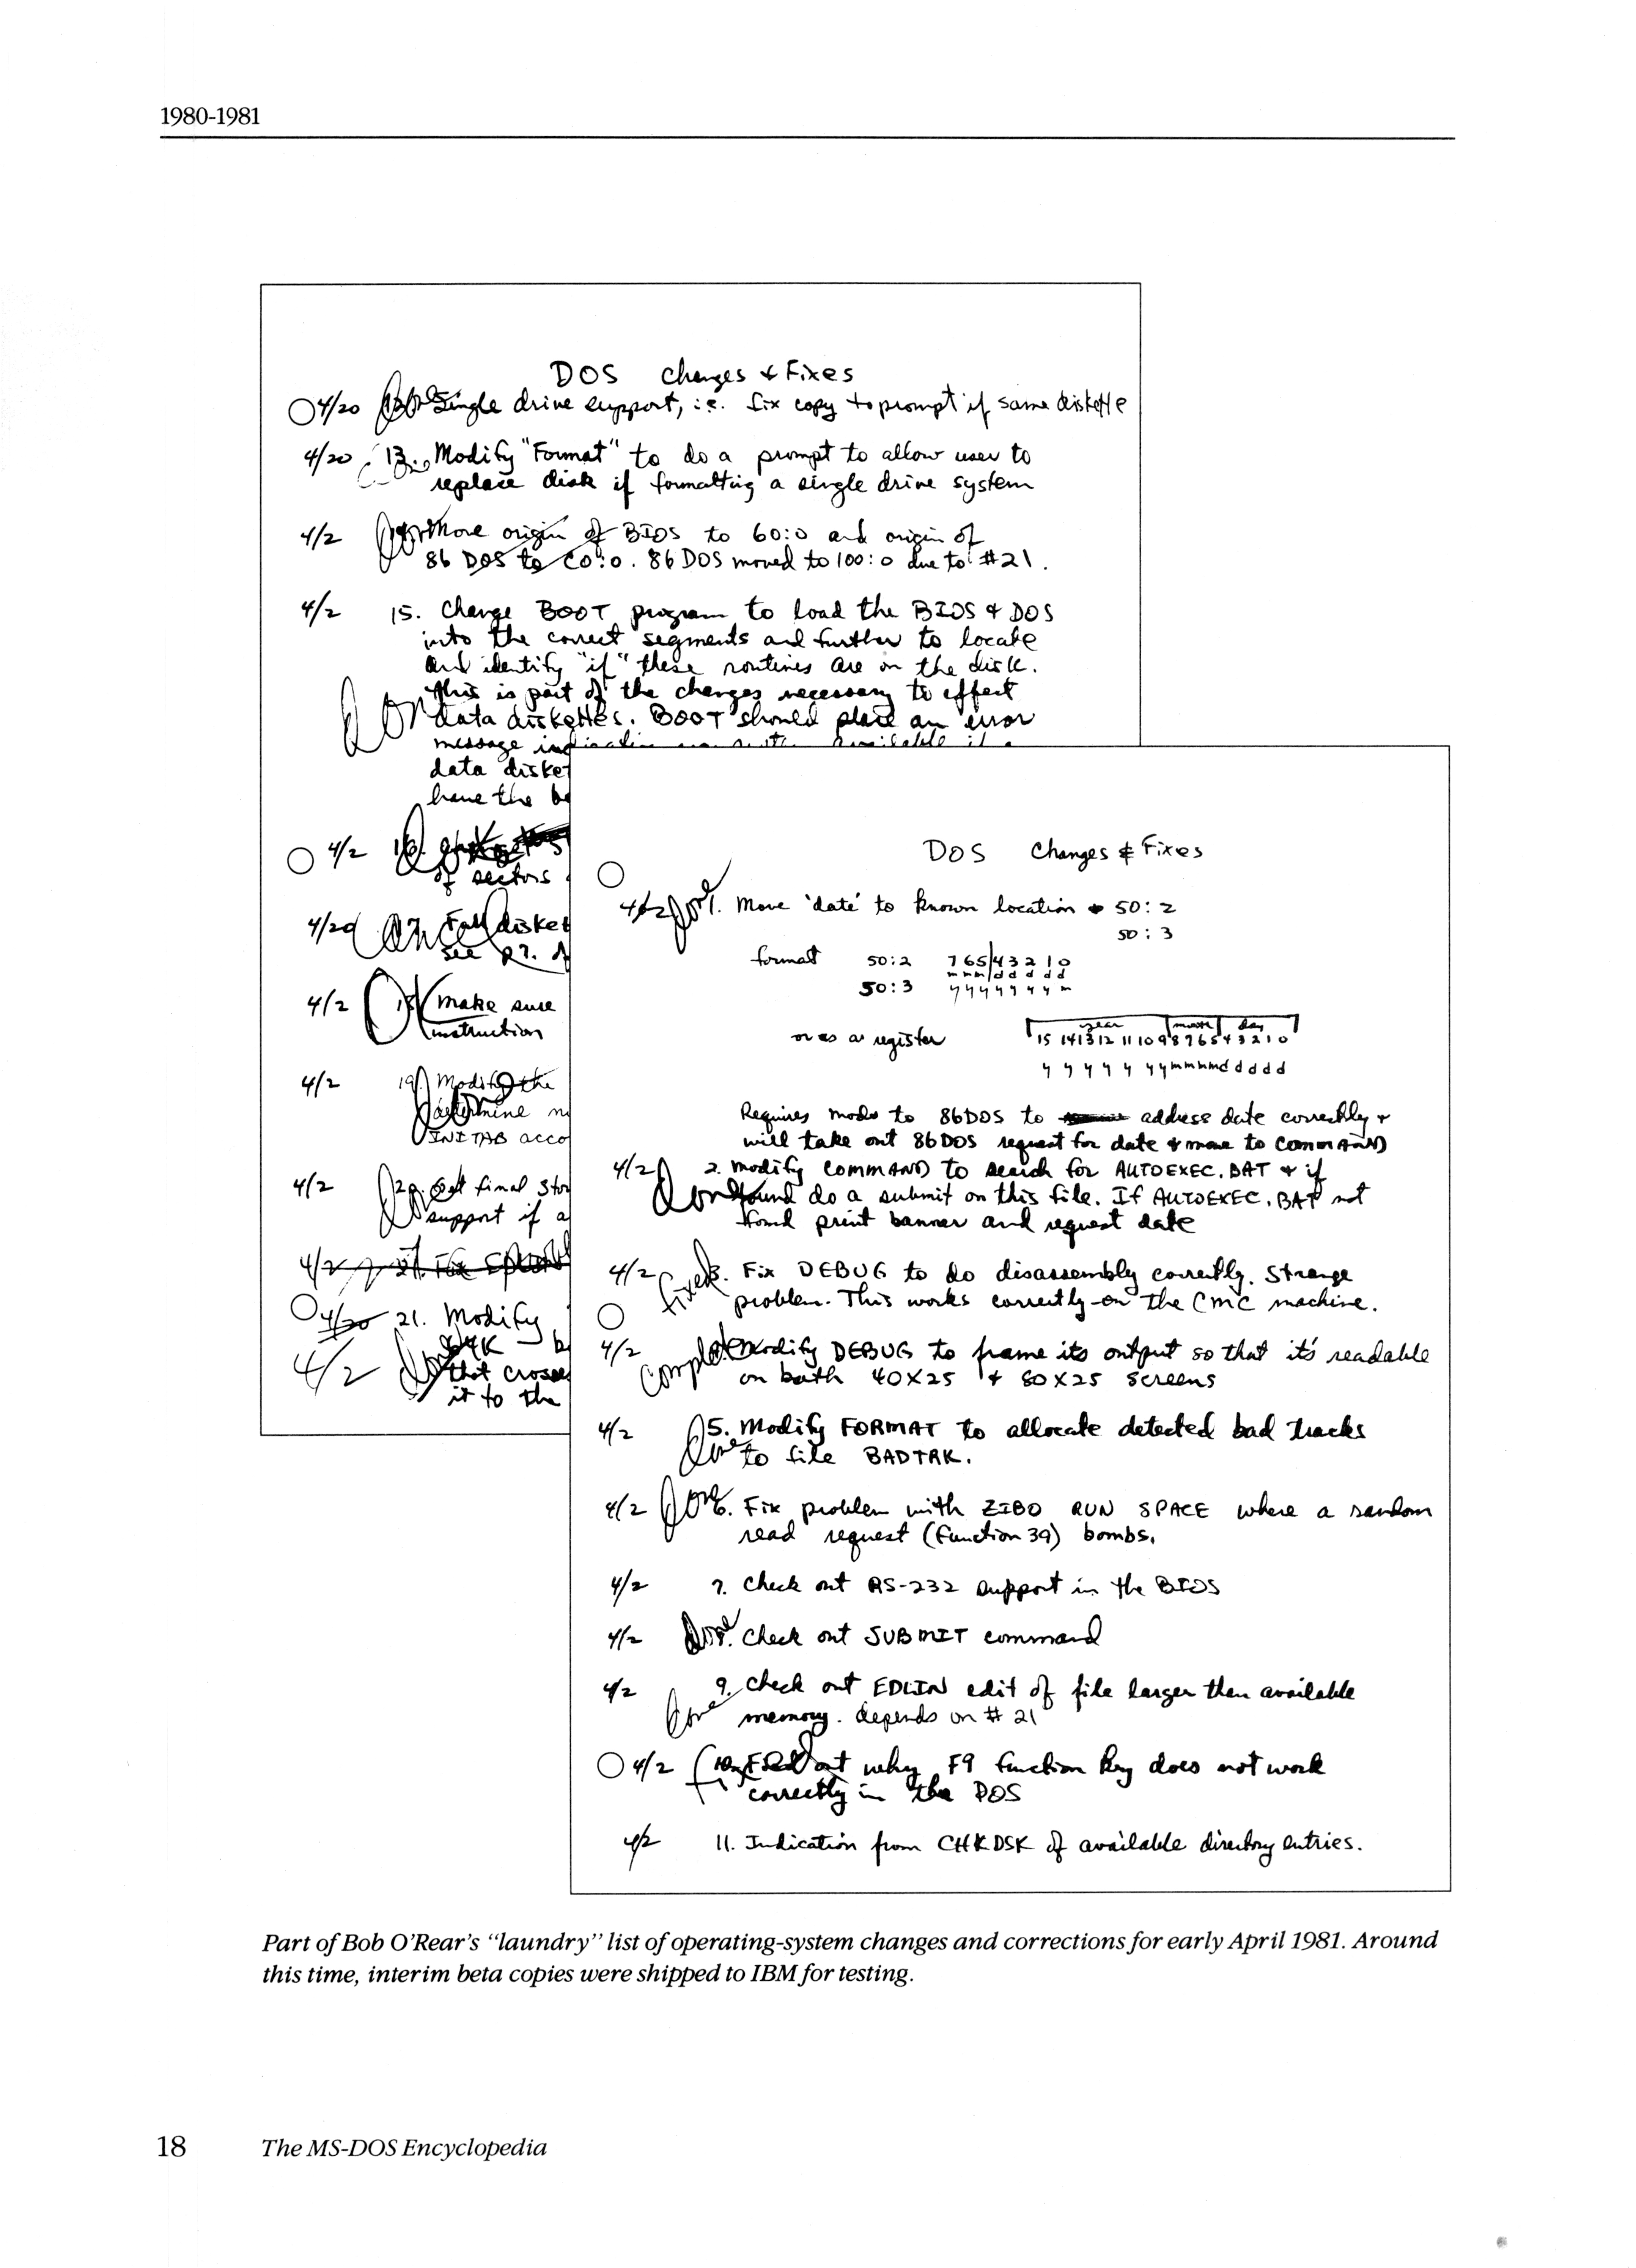 1980-1981
DOS Changes & Fixes
4/20 Single drive support, i.e. fix copy to prompt if same diskette
4/20 13. Modify "Format" to do a prompt to allow user to
replace disk if formatting a single drive system
4/2 Move origin of BIOS to 60:0 and origin of
86 DOS to C0:0. 86 DOS moved to 100:0 due to #21.
4/2 15. Change BOOT program to load the BIOS & DOS
into the correct segments and further to locate
and identify "if" these routines are on the disk.
This is part of the changes necessary to effect
Done data diskettes. BOOT should place an error
message
data disket
have the
4/2 16.
of sectors
4/20 disket
see p7.
4/2 18 make sure
instruction
4/2 19. Modify the
determine
INITAB acco
4/2 20. Get final
support if a
4/2
4/20 21. Modify
4/2
that crosses
it to the
DOS Changes & Fixes
4/2 Done 1. Move 'date' to known location 50:2
50:3
format 50:2 7 6 5 4 3 2 1 0
m m m d d d d d
50:3 y y y y y y y m
year month day
or as a register 15 14 13 12 11 10 9 8 7 6 5 4 3 2 1 0
y y y y y y y m m m m d d d d d
Requires mods to 86DOS to address date correctly &
will take out 86DOS request for date & move to COMMAND
4/2 2. Modify COMMAND to search for AUTOEXEC.BAT & if
Done found do a submit on this file. If AUTOEXEC.BAT not
found print banner and request date
4/2 Fixed 3. Fix DEBUG to do disassembly correctly. Strange
problem. This works correctly on the CMC machine.
4/2 Complete Modify DEBUG to frame its output so that it's readable
on both 40X25 & 80X25 screens
4/2 5. Modify FORMAT to allocate detected bad tracks
Done to file BADTRK.
4/2 Done 6. Fix problem with ZIBO RUN SPACE where a random
read request (Function 39) bombs.
4/2 7. Check out RS-232 support in the BIOS
4/2 Done Check out SUBMIT command
4/2 9. Check out EDLIN edit of file larger then available
Done memory. depends on #21
4/2 10. Find out why F9 function key does not work
correctly in the DOS
4/2 11. Indication from CHKDSK of available directory entries.
Part of Bob O'Rear's "laundry" list of operating-system changes and corrections for early April 1981. Around
this time, interim beta copies were shipped to IBM for testing.
18 The MS-DOS Encyclopedia